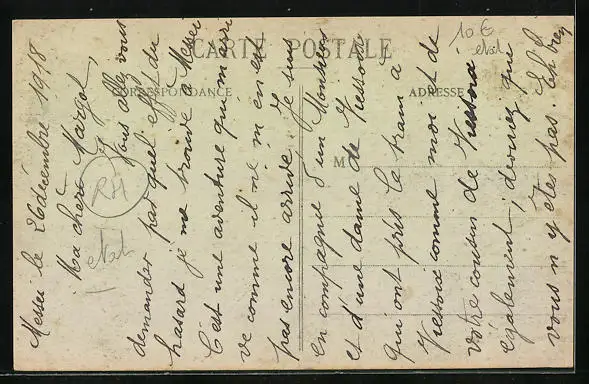 CARTE POSTALE
CORRESPONDANCE
ADRESSE
M
10 €
etat
RH
etat
Messei le 26 décembre 1918
Ma chère Margot,
Vous allez vous
demander par quel effet du
hasard je me trouve à Messei
C'est une aventure qui m'arri
ve comme il ne m'en est
pas encore arrivé. Je suis
en compagnie d'un Monsieur
et d'une dame de
qui ont pris le tram à
comme moi et de
votre cousin de
également, devinez que
vous n'y êtes pas. Eh